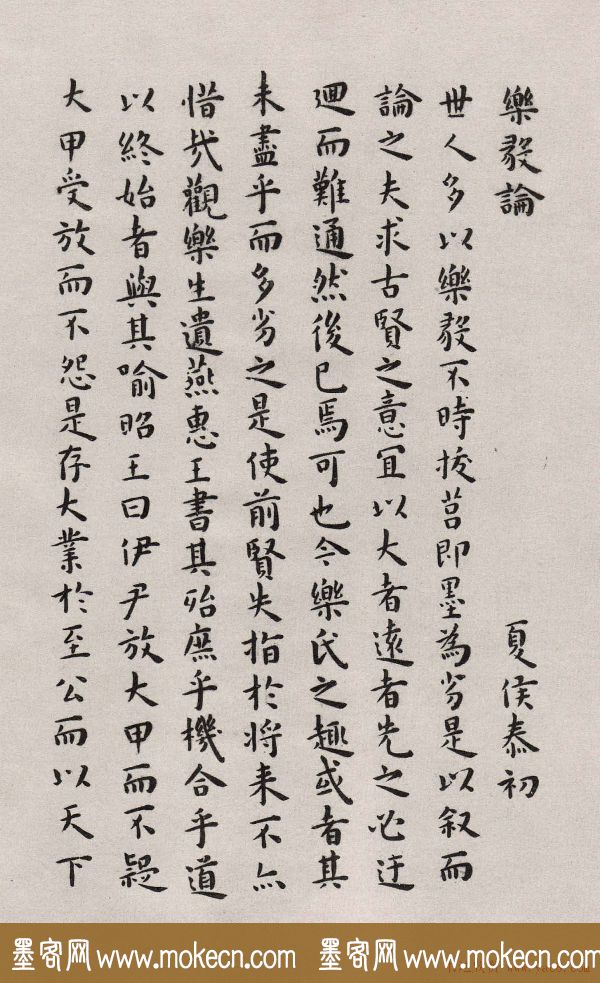 樂毅論 夏侯泰初
世人多以樂毅不時拔莒即墨為劣是以叙而
論之夫求古賢之意宜以大者遠者先之必迂
迴而難通然後已焉可也今樂氏之趣或者其
未盡乎而多劣之是使前賢失指於将来不亦
惜哉觀樂生遺燕惠王書其殆庶乎機合乎道
以終始者與其喻昭王曰伊尹放大甲而不疑
大甲受放而不怨是存大業於至公而以天下
墨客网 www.mokecn.com 墨客网 www.mokecn.com